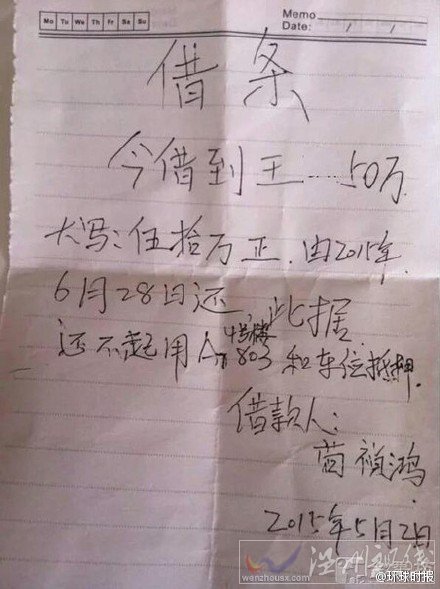 Mo Tu We Th Fr Sa Su
Memo
Date: / /
借条
今借到王……50万
大写:伍拾万正.由2015年.
6月28日还,此据
还不起用A 4号楼803和车位抵押.
借款人:
祯鸿.
2015年5月2日
温州视线
www.wenzhousx.com
@环球时报